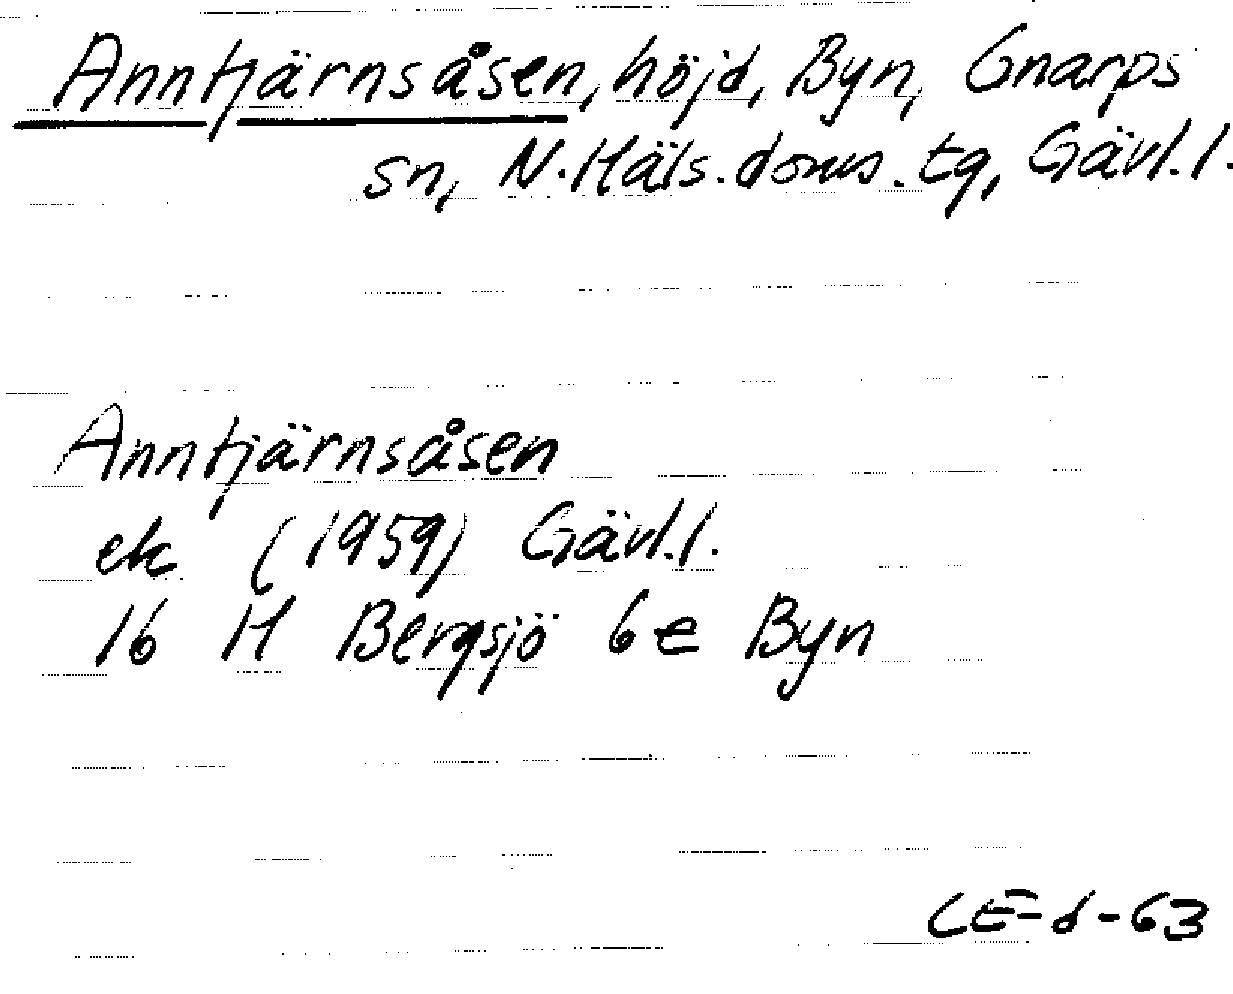 Anntjärnsåsen, höjd, Byn, Gnarps
sn, N. Häls. doms. tg, Gävl. l.
Anntjärnsåsen
ek (1959) Gävl. l.
16 H Bergsjö 6e Byn
CE-d-63